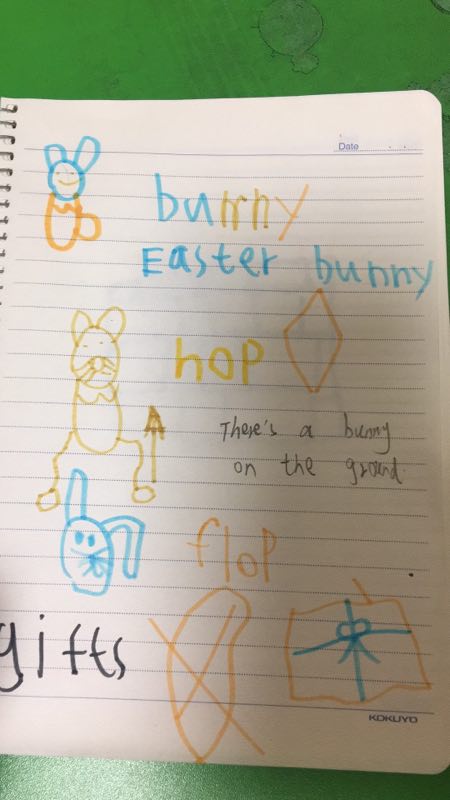 Date
bunny
Easter bunny
hop
There's a bunny
on the ground
flop
gifts
KOKUYO